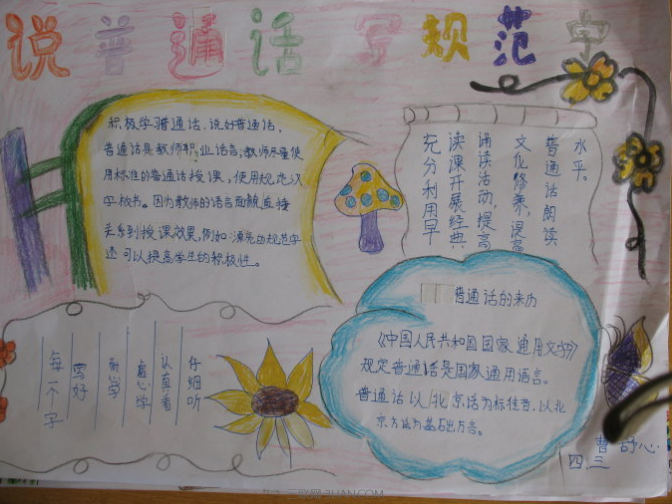 说普通话 写规范字
积极学习普通话、说好普通话,
普通话是教师职业语言,教师尽量使
用标准的普通话授课,使用规范汉
字板书。因为教师的语言面貌直接
关系到授课效果,例如:漂亮的规范字
还可以提高学生的积极性。
充分利用早
读课开展经典
诵读活动,提高
文化修养,提高
普通话朗读
水平。
普通话的来历
《中国人民共和国国家通用文字》
规定普通话是国家通用语言。
普通话以北京话为标准音,以北
京方话为基础方言。
仔细听
认真看
虚心学
勤学
写好
每一个字
曹舒心
四、三